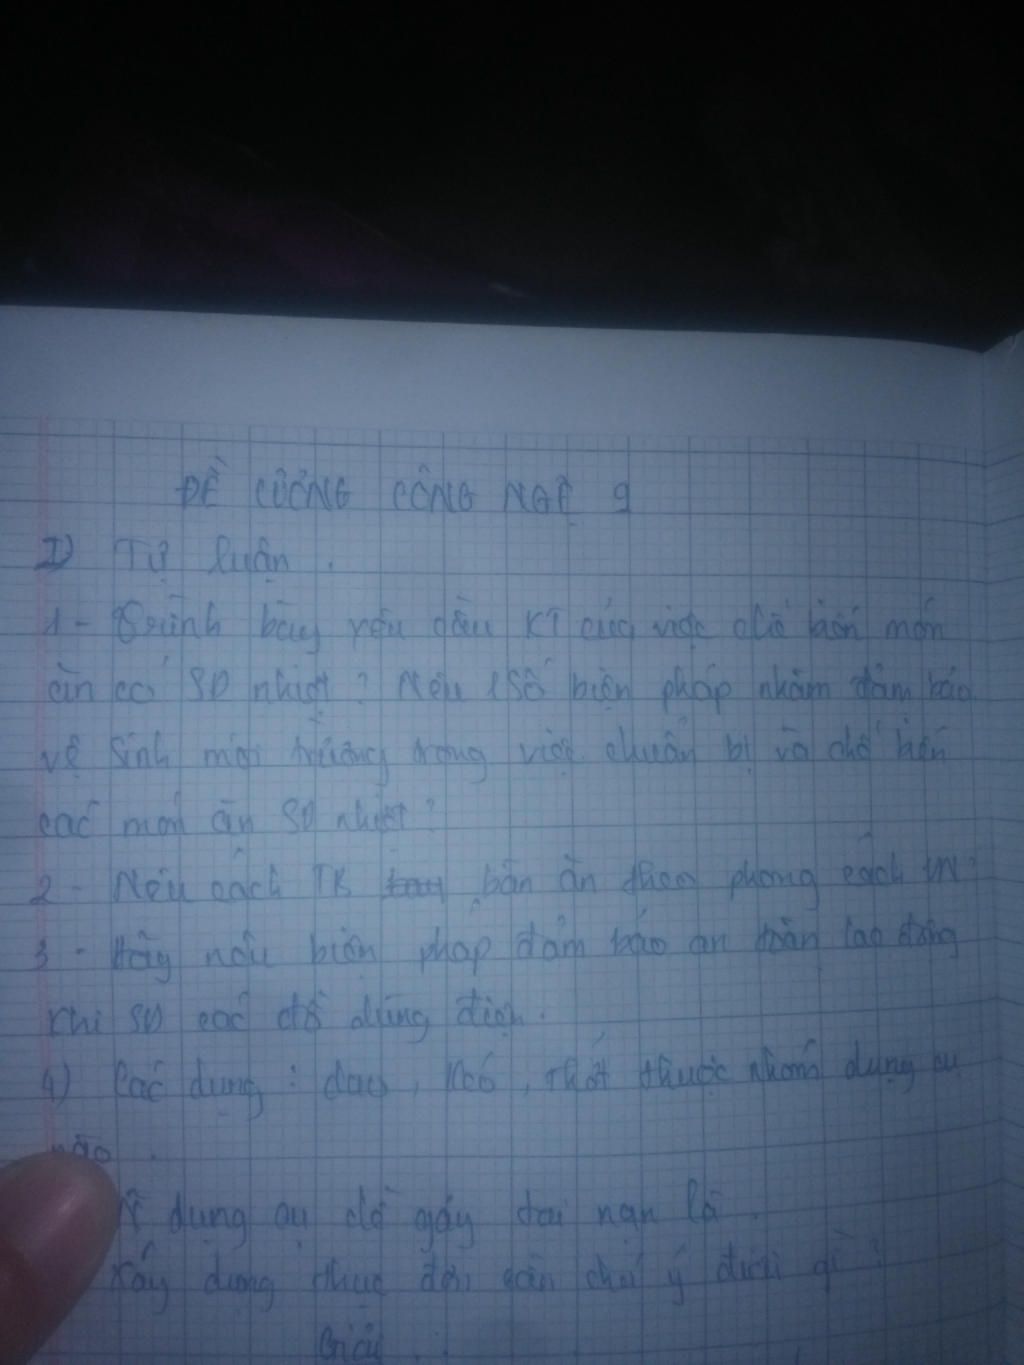 ĐỀ CƯƠNG CÔNG NGỆ 9
I) Tự luận.
1- Trình bày yêu cầu KT của việc chế biến món
ăn có SD nhiệt? Nêu 1 số biện pháp nhằm đảm bảo
vệ sinh môi trường trong việc chuẩn bị và chế biến
các món ăn SD nhiệt?
2- Nêu cách TB bàn ăn theo phong cách VN?
3- Hãy nêu biện pháp đảm bảo an toàn lao động
khi SD các đồ dùng điện.
4) Các dụng: dao, kéo, thớt thuộc nhóm dụng cụ
nào.
dụng cụ dễ gây tai nạn là.
Xây dựng thực đơn cần chú ý điều gì?